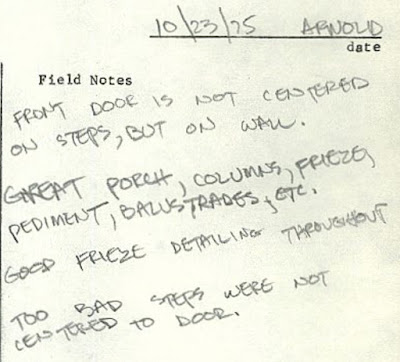 10/23/75 ARNOLD
date
Field Notes
FRONT DOOR IS NOT CENTERED
ON STEPS, BUT ON WALL.
GREAT PORCH, COLUMNS, FRIEZE,
PEDIMENT, BALUSTRADES, ETC.
GOOD FRIEZE DETAILING THROUGHOUT
TOO BAD STEPS WERE NOT
CENTERED TO DOOR.